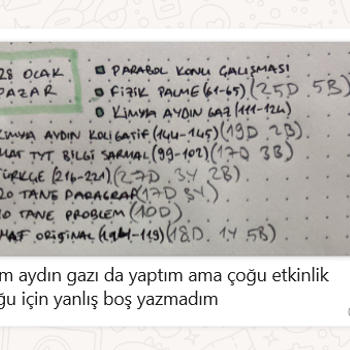 28 OCAK
PAZAR
PARABOL KONU ÇALIŞMASI
FİZİK PALME (61-65) (25D 5B)
KİMYA AYDIN GAZ (111-124)
KİMYA AYDIN KOLİGATİF (144-145) (19D 2B)
MAT TYT BİLGİ SARMAL (99-102) (17D 3B)
TÜRKÇE (216-221) (27D 3Y 2B)
20 TANE PARAGRAF (17D 3Y)
10 TANE PROBLEM (10D)
ORİGİNAL (18D 1Y 5B)
m aydın gazı da yaptım ama çoğu etkinlik
ğu için yanlış boş yazmadım